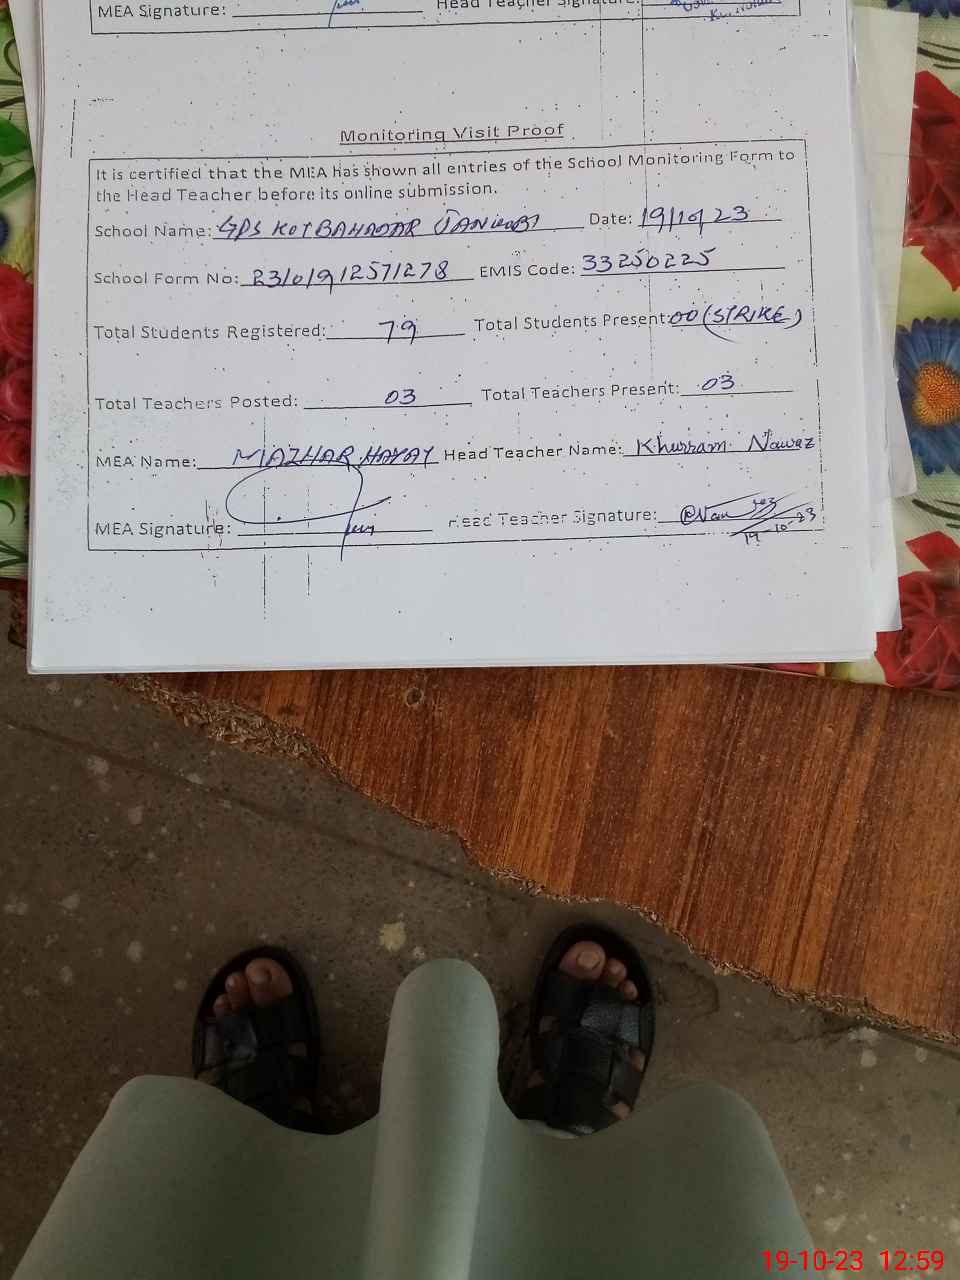 MEA Signature: Head Teacher Signature:
Monitoring Visit Proof
It is certified that the MEA has shown all entries of the School Monitoring Form to
the Head Teacher before its online submission.
School Name: GPS KOT BAHADAR JANUBI Date: 19/10/23
School Form No: 23101912571278 EMIS Code: 33250225
Total Students Registered: 79 Total Students Present: 00 (STRIKE)
Total Teachers Posted: 03 Total Teachers Present: 03
MEA Name: MAZHAR HAYAT Head Teacher Name: Khurram Nawaz
MEA Signature: Head Teacher Signature:
19-10-23
19-10-23 12:59